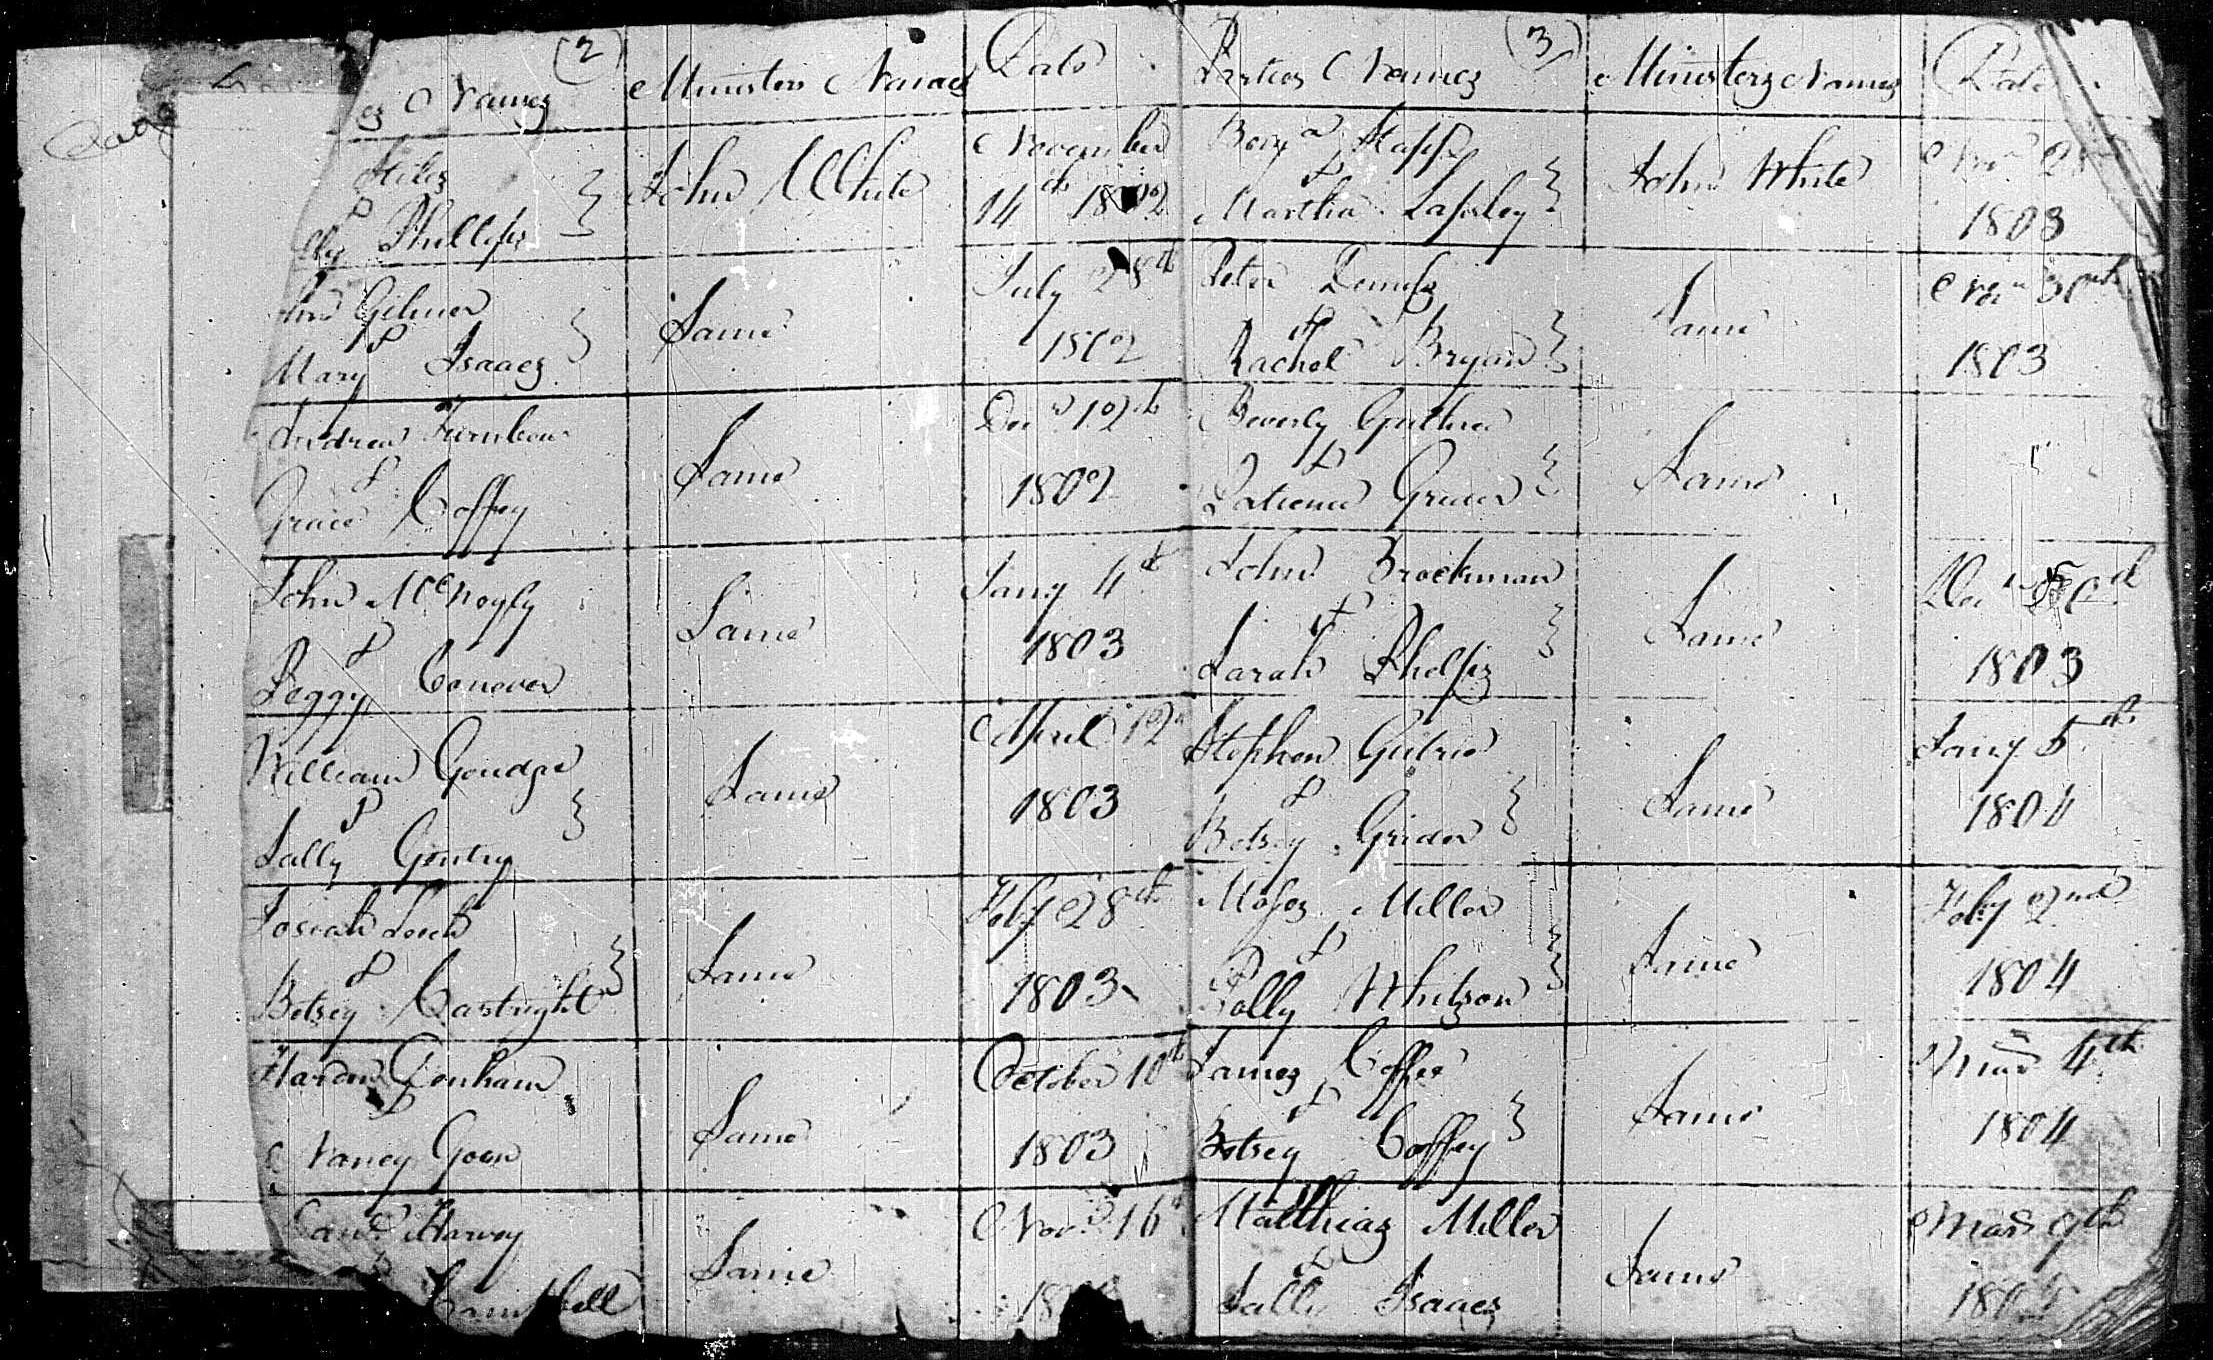 (2)
es Names
Ministers Names
Date
Stiles
&
Phillips
John White
November
14th 1802
Gilmer
&
Mary Isaacs
Same
July 28th
1802
Andrew Turnbow
&
Grace Coffey
Same
Decr 12th
1802
John
&
Peggy Conover
Same
Jany 4th
1803
William Goudge
&
Sally Gentry
Same
April 12
1803
Josiah Leech
&
Betsey Cartright
Same
Feby 28th
1803
Hardin Denham
&
Nancy Goen
Same
October 10th
1803
Harvey
&
Campbell
Same
Novr 16
18
(3)
Parties Names
Ministers Names
Date
Stapp
&
Martha Lapsley
John White
Novr
1803
Peter
&
Rachel Bryan
Same
Novr 30th
1803
Beverly Guthrie
&
Patience Grider
Same
John Brockman
&
Sarah Phelps
Same
Decr
1803
Stephen Gutrie
&
Betsey Grider
Same
Jany 5th
1804
Moses Miller
&
Polly Whitson
Same
Feby 2nd
1804
James Coffee
&
Betsey Coffey
Same
Mar 4th
1804
Matthias Miller
&
Sally Isaacs
Same
Mar 9th
180
Page